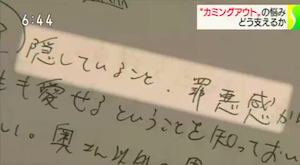 6:44
"カミングアウト"の悩み
どう支えるか
隠していること、罪悪感が
も愛せるということを知ってお
い。奥さん以外の